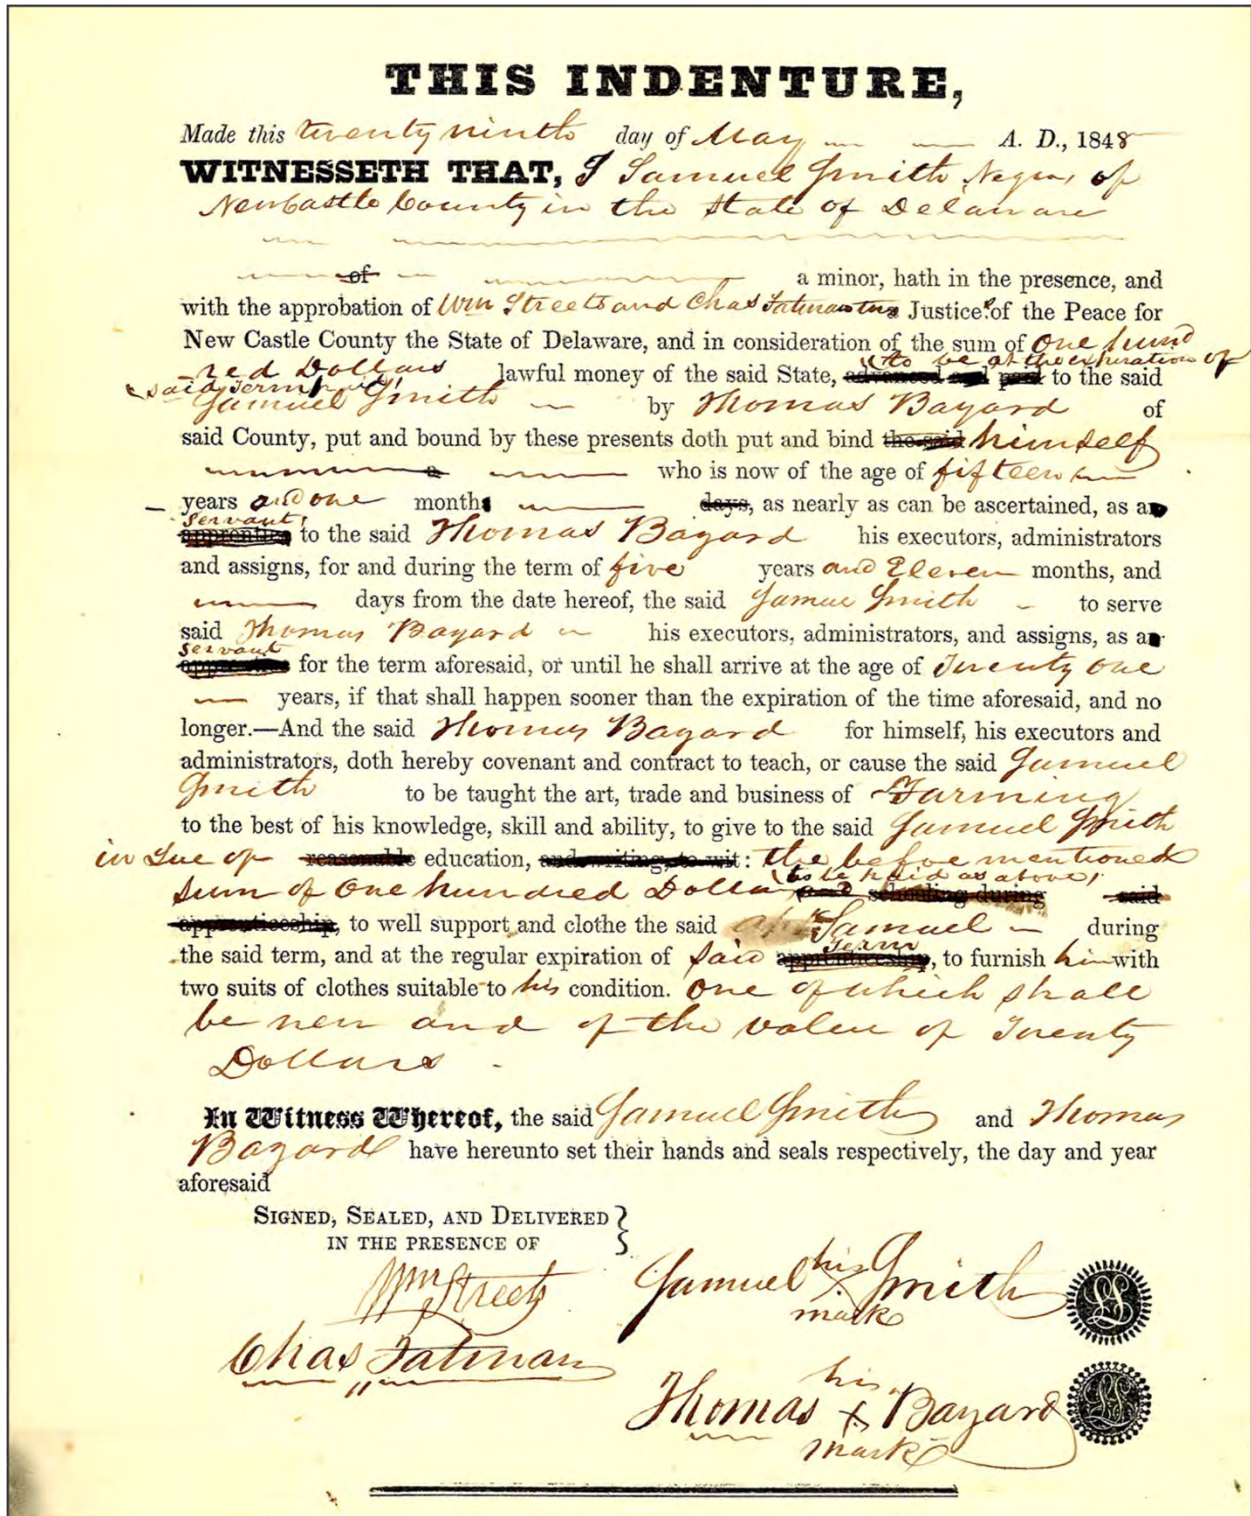 THIS INDENTURE,
Made this twenty ninth day of May A. D., 1848
WITNESSETH THAT, I Samuel Smith Negro, of
NewCastle County in the State of Delaware
of a minor, hath in the presence, and
with the approbation of Wm Streets and Chas Tatman two Justices of the Peace for
New Castle County the State of Delaware, and in consideration of the sum of One hund
red Dollars lawful money of the said State, advanced and paid to be at the expiration of to the said
said term paid,
Samuel Smith by Thomas Bayard of
said County, put and bound by these presents doth put and bind the said himself
who is now of the age of fifteen
years and one month days, as nearly as can be ascertained, as a
servant,
apprentice to the said Thomas Bayard his executors, administrators
and assigns, for and during the term of five years and Eleven months, and
days from the date hereof, the said Samuel Smith to serve
said Thomas Bayard his executors, administrators, and assigns, as a
servant
apprentice for the term aforesaid, or until he shall arrive at the age of Twenty one
years, if that shall happen sooner than the expiration of the time aforesaid, and no
longer.—And the said Thomas Bayard for himself, his executors and
administrators, doth hereby covenant and contract to teach, or cause the said Samuel
Smith to be taught the art, trade and business of Farming
to the best of his knowledge, skill and ability, to give to the said Samuel Smith
in Lue of reasonable education, and writing, to wit: the before mentioned
to be paid as above,
sum of One hundred Dollars and schooling during said
apprenticeship, to well support and clothe the said Samuel during
term
the said term, and at the regular expiration of said apprenticeship, to furnish him with
two suits of clothes suitable to his condition. One of which shall
be new and of the value of Twenty
Dollars
In Witness Whereof, the said Samuel Smith and Thomas
Bayard have hereunto set their hands and seals respectively, the day and year
aforesaid
SIGNED, SEALED, AND DELIVERED
IN THE PRESENCE OF
Wm Streets
Samuel his X mark Smith
LS
Chas Tatman
Thomas his X mark Bayard
LS